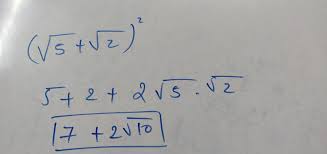 (√5 + √2)²
5 + 2 + 2√5 · √2
7 + 2√10